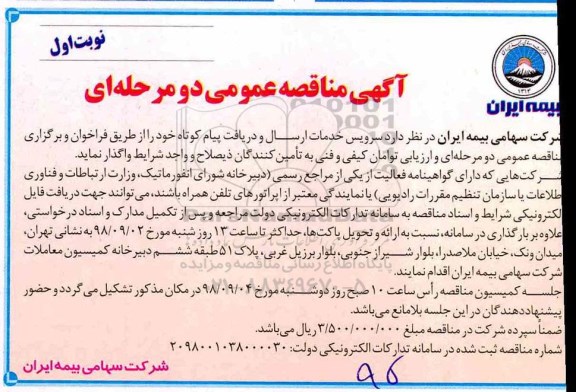 نوبت اول
بیمه ایران
آگهی مناقصه عمومی دو مرحله‌ای
شرکت سهامی بیمه ایران در نظر دارد سرویس خدمات ارسال و دریافت پیام کوتاه خود را از طریق فراخوان و برگزاری
مناقصه عمومی دو مرحله‌ای و ارزیابی توامان کیفی و فنی به تأمین کنندگان ذیصلاح و واجد شرایط واگذار نماید.
شرکت‌هایی که دارای گواهینامه فعالیت از یکی از مراجع رسمی (دبیرخانه شورای انفورماتیک، وزارت ارتباطات و فناوری
اطلاعات یا سازمان تنظیم مقررات رادیویی) یا نمایندگی معتبر از اپراتورهای تلفن همراه باشند، می‌توانند جهت دریافت فایل
الکترونیکی شرایط و اسناد مناقصه به سامانه تدارکات الکترونیکی دولت مراجعه و پس از تکمیل مدارک و اسناد درخواستی،
علاوه بر بارگذاری در سامانه، نسبت به ارائه و تحویل پاکت‌ها، حداکثر تا ساعت ۱۳ روز شنبه مورخ ۹۸/۰۹/۰۲ به نشانی تهران،
میدان ونک، خیابان ملاصدرا، بلوار شیراز جنوبی، بلوار برزیل غربی، پلاک ۵۱ طبقه ششم دبیرخانه کمیسیون معاملات
شرکت سهامی بیمه ایران اقدام نمایند.
جلسه کمیسیون مناقصه رأس ساعت ۱۰ صبح روز دوشنبه مورخ ۹۸/۰۹/۰۴ در مکان مذکور تشکیل می‌گردد و حضور
پیشنهاددهندگان در این جلسه بلامانع می‌باشد.
ضمناً سپرده شرکت در مناقصه مبلغ ۳/۵۰۰/۰۰۰/۰۰۰ ریال می‌باشد.
شماره مناقصه ثبت شده در سامانه تدارکات الکترونیکی دولت: ۲۰۹۸۰۰۱۰۳۸۰۰۰۰۳۰
شرکت سهامی بیمه ایران